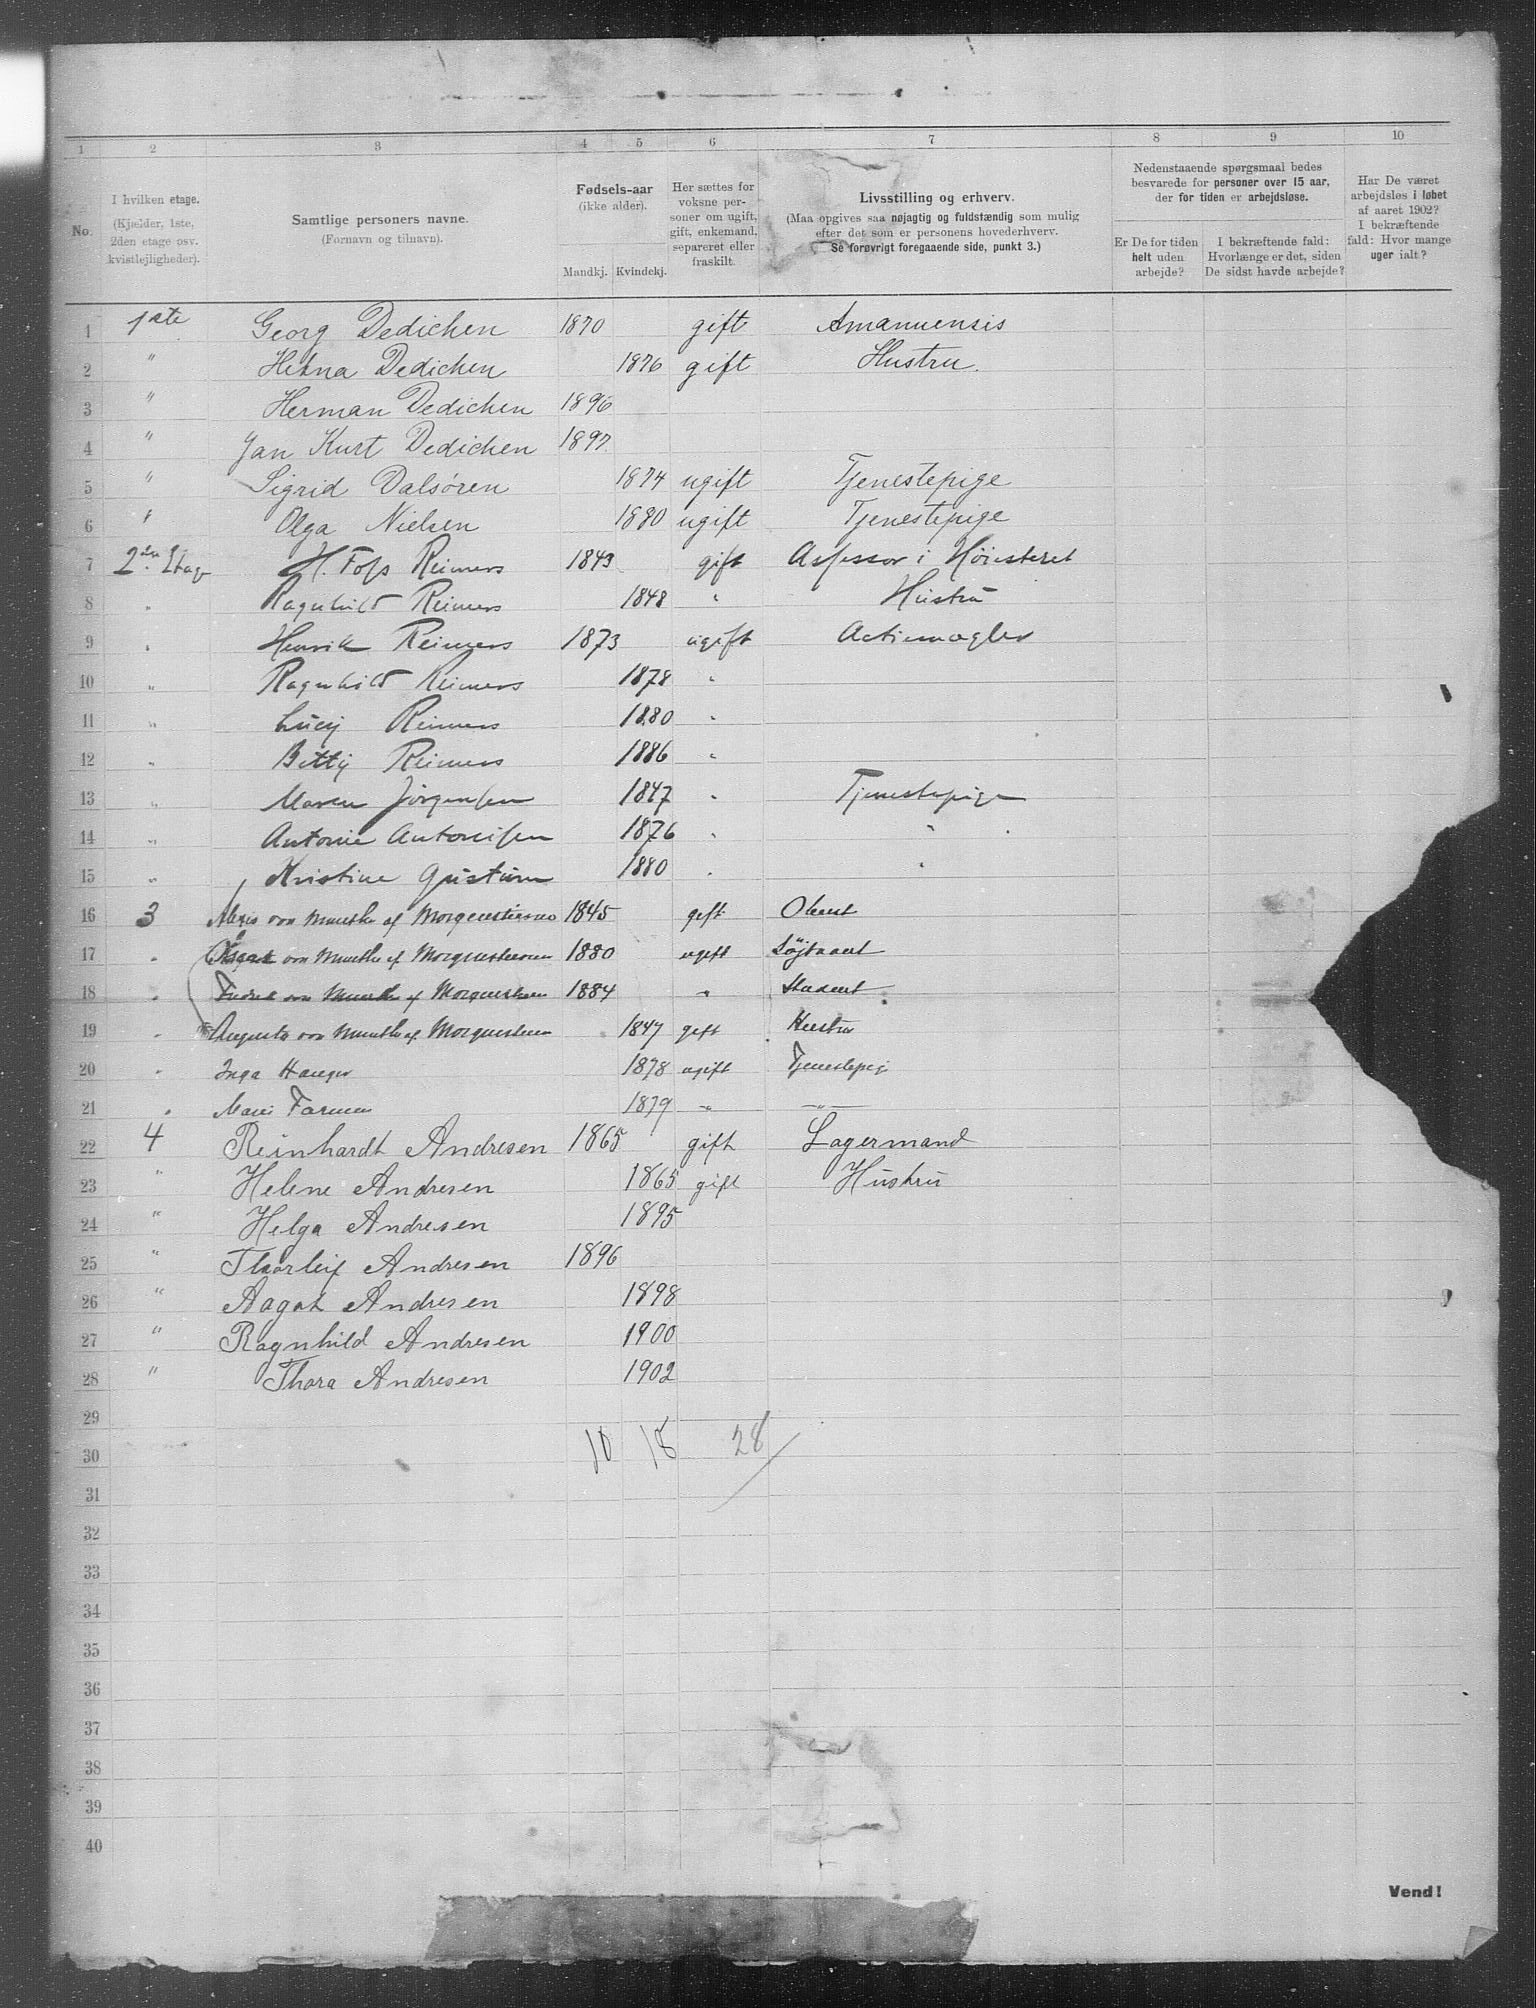 1 2 3 4 5 6 7 8 9 10
No.
I hvilken etage.
(Kjelder, 1ste,
2den etage osv.
kvistlejligheder).
Samtlige personers navne.
(Fornavn og tilnavn).
Fødsels-aar
(ikke alder).
Mandkj. Kvindekj.
Her sættes for
voksne per-
soner om ugift,
gift, enkemand,
separeret eller
fraskilt.
Livsstilling og erhverv.
(Maa opgives saa nøjagtig og fuldstændig som mulig
efter det som er personens hovederhverv.
Se forøvrigt foregaaende side, punkt 3.)
Nedenstaaende spørgsmaal bedes
besvarede for personer over 15 aar,
der for tiden er arbejdsløse.
Er De for tiden
helt uden
arbejde?
I bekræftende fald:
Hvorlænge er det, siden
De sidst havde arbejde?
Har De været
arbejdsløs i løbet
af aaret 1902?
I bekræftende
fald: Hvor mange
uger ialt?
1 1ste Georg Dedichen 1870 gift Amanuensis
2 " Dedichen 1876 gift Hustru.
3 " Herman Dedichen 1896
4 " Jan Kurt Dedichen 1897.
5 " Sigrid Dalsören 1874 ugift Tjenestepige
6 " Olga Nielsen 1880 ugift Tjenestepige
7 2den Etage H. Foss Reimers 1843 gift Assessor i Höiesteret
8 " Ragnhild Reimers 1848 " Hustru
9 " Henrik Reimers 1873 ugift Actiemægler
10 " Ragnhild Reimers 1878 "
11 " Lucy Reimers 1880 "
12 " Betty Reimers 1886 "
13 " Maren Jörgensen 1847 " Tjenestepige
14 " Antonie Antonisen 1876 " "
15 " Kristine 1880 " "
16 3 Alexis von Munthe af Morgenstierne 1845 gift Oberst
17 " von Munthe af Morgenstierne 1880 ugift
18 " von Munthe af Morgenstierne 1884 " Student
19 " Augusta von Munthe af Morgenstierne 1847 gift Hustru
20 " Inga 1878 ugift Tjenestepige
21 " 1879 " "
22 4 Reinhardt Andresen 1865 gift Lagermand
23 " Helene Andresen 1865 gift Hustru
24 " Helga Andresen 1895
25 " Thorleif Andresen 1896
26 " Aagot Andresen 1898
27 " Ragnhild Andresen 1900
28 " Thora Andresen 1902
29
30 10 18 28
31
32
33
34
35
36
37
38
39
40
Vend!